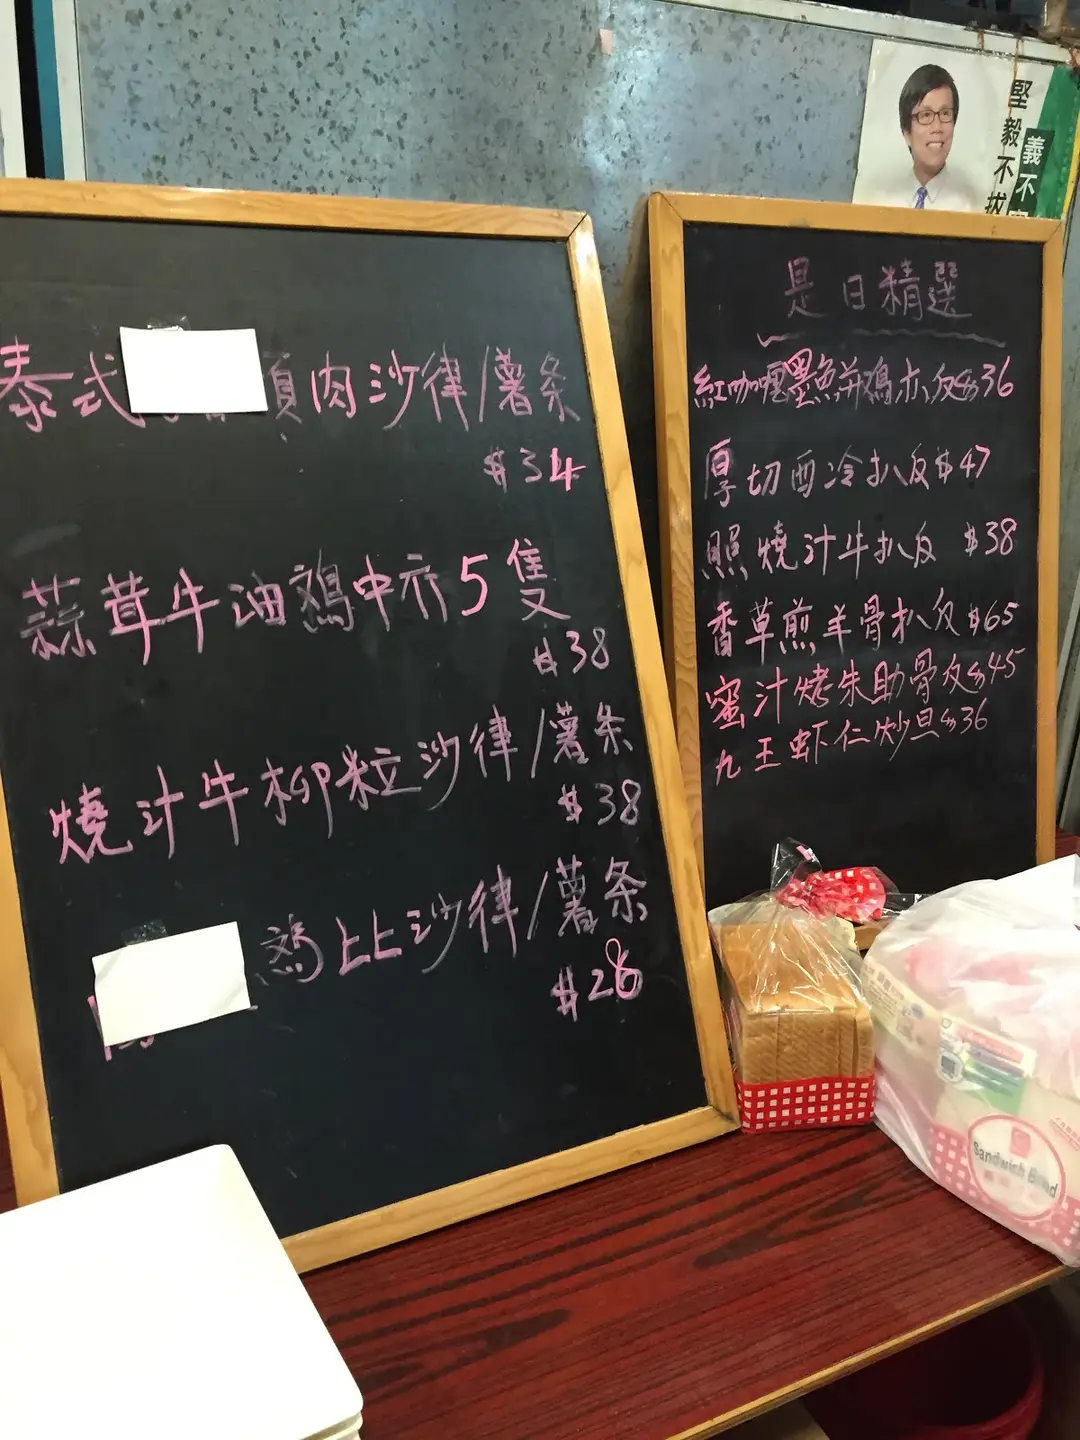 泰式 頸肉沙律/薯条
$34
蒜茸牛油鷄中亦5隻
$38
燒汁牛柳粒沙律/薯条
$38
鷄上上沙律/薯条
$28
是日精選
紅咖喱墨魚并鷄扒反$36
厚切西冷扒反$47
照燒汁牛扒反 $38
香草煎羊骨扒反$65
蜜汁烤朱助骨反$45
九王虾仁炒旦$36
堅毅不拔
義不
Sandwich Bread